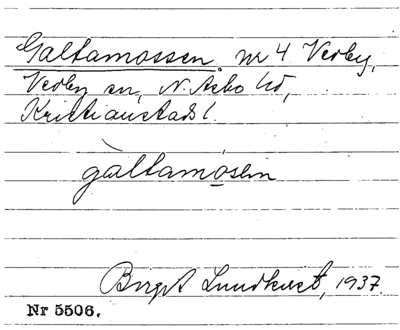 Galtamossen. nr 4 Verby,
Verby sn, N. Åsbo hd,
Kristianstads l.
gàltamósen
Birgit Lundkvist, 1937.
Nr 5506.